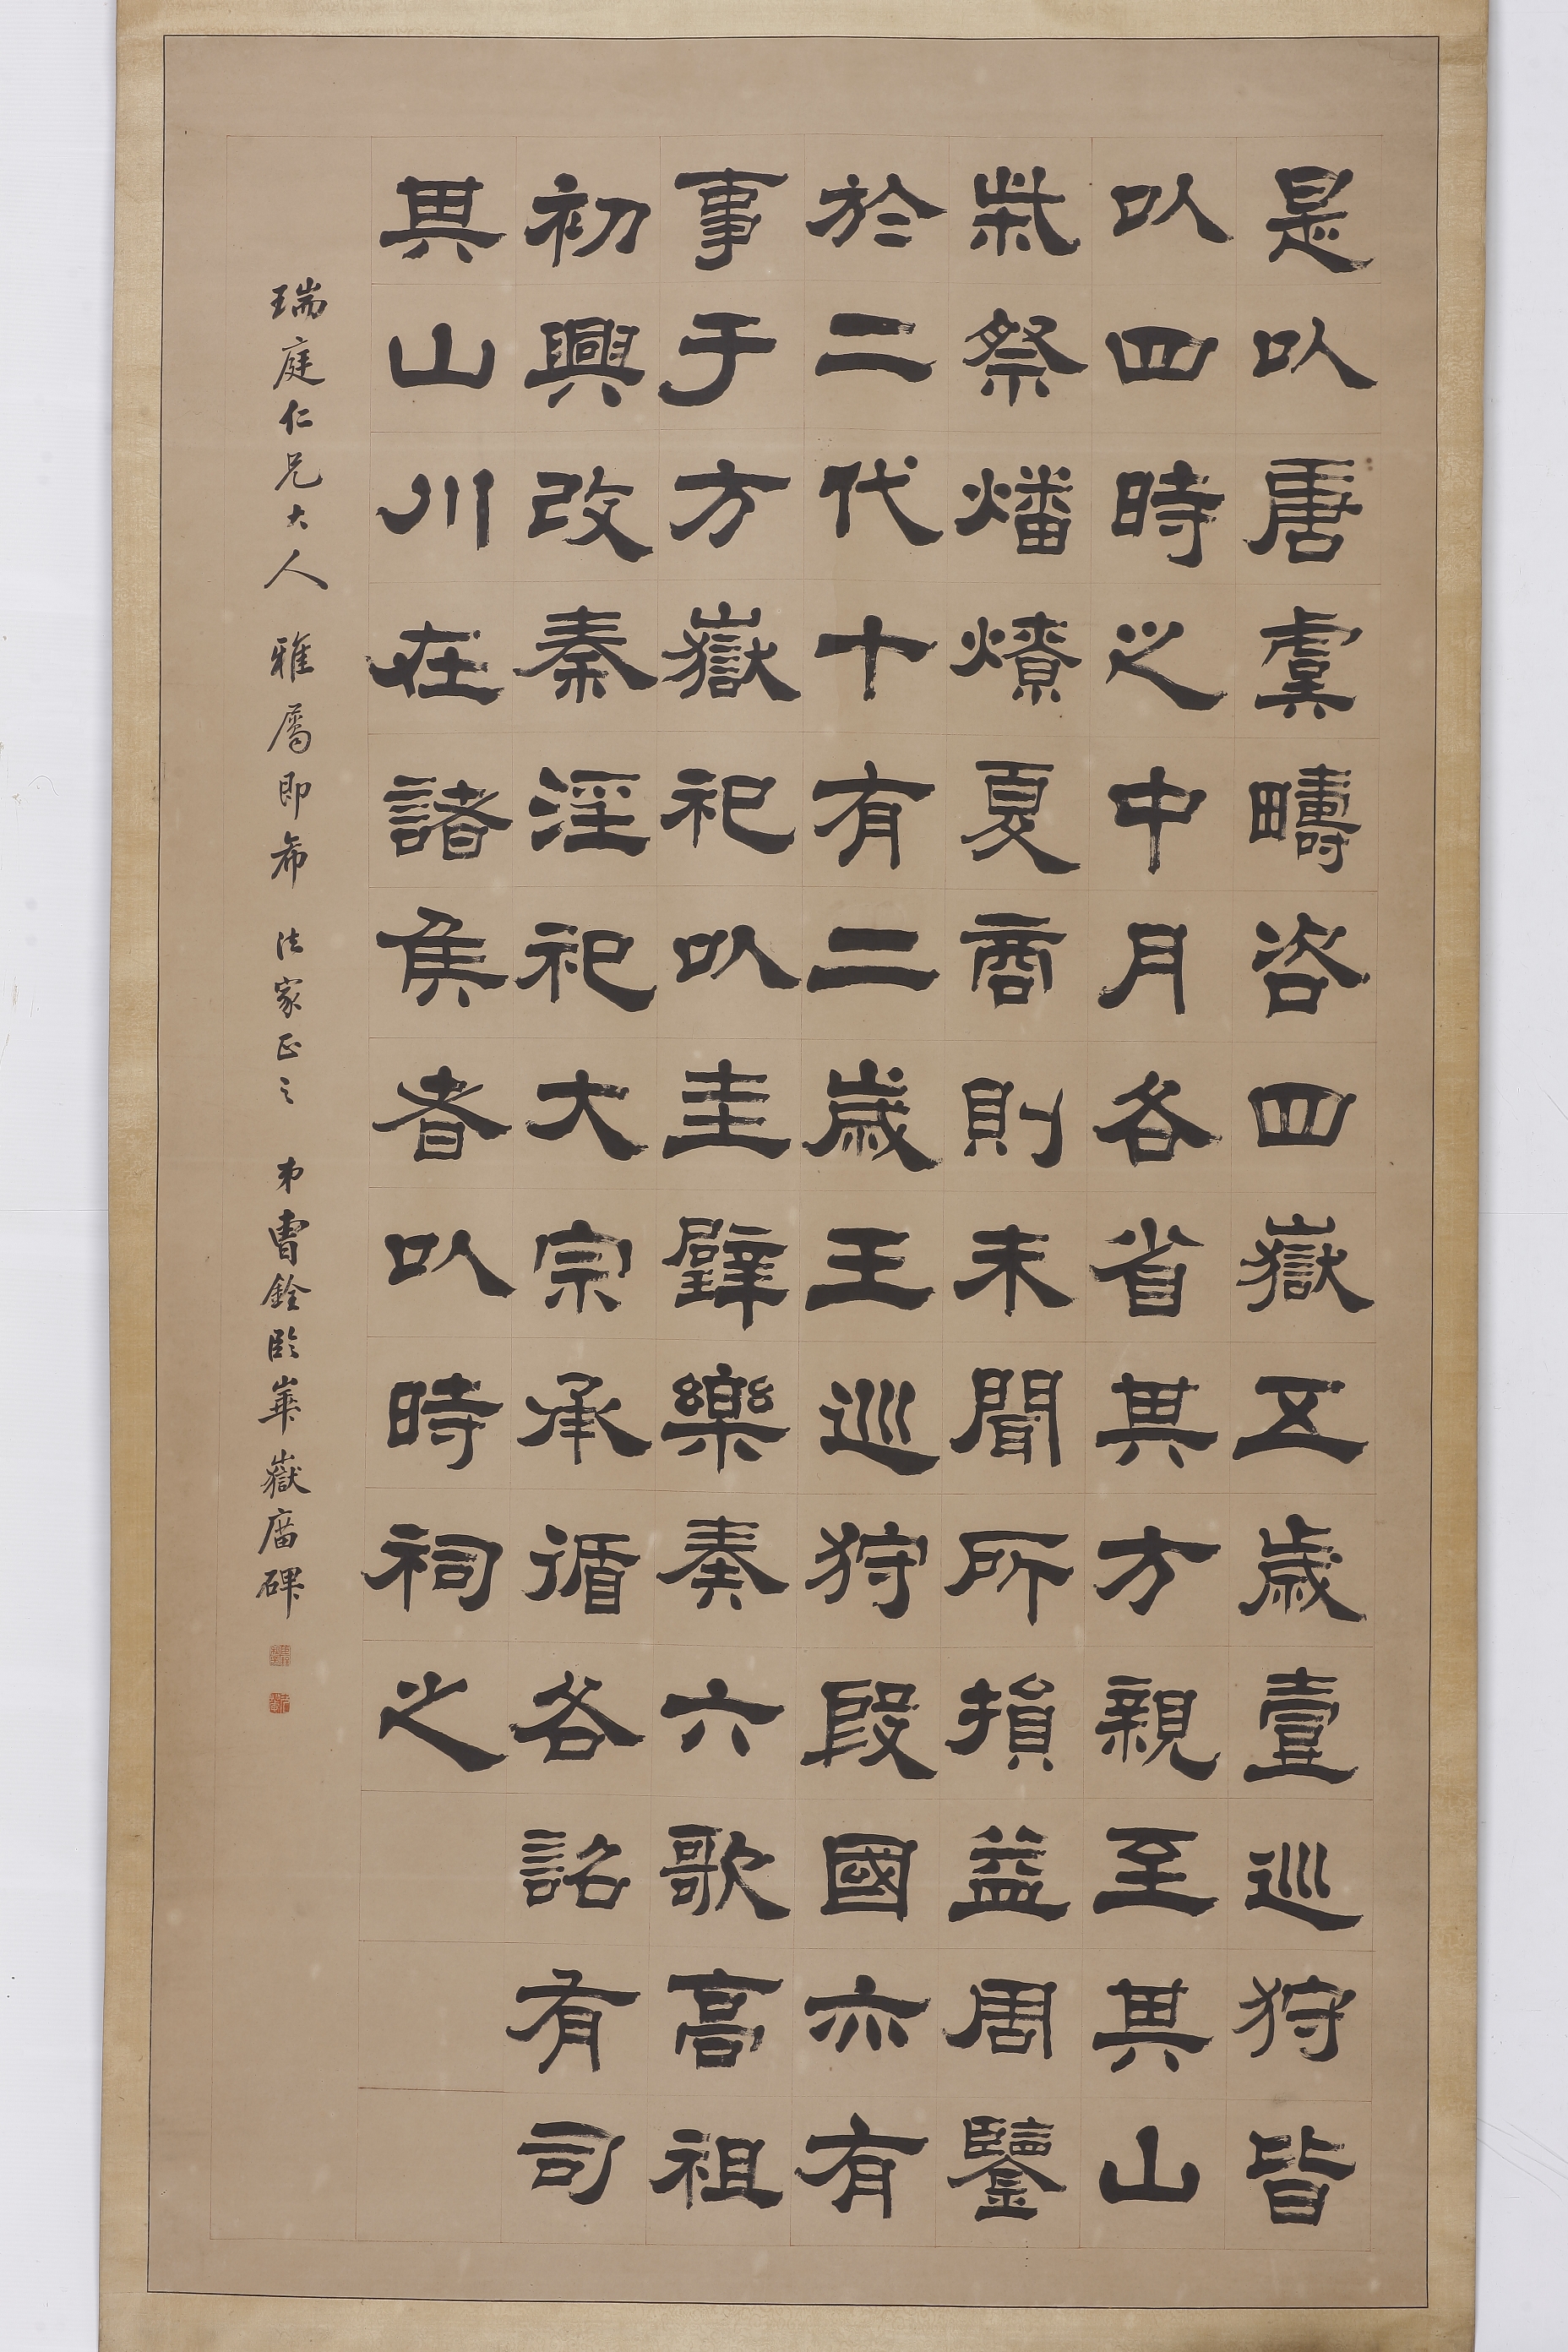 是以唐虞疇咨四嶽五歲壹巡狩皆
以四時之中月各省其方親至其山
柴祭燔燎夏商則未聞所損益周鑒
於二代十有二歲王巡狩殷國亦有
事于方嶽祀以圭璧樂奏六歌高祖
初興改秦淫祀大宗承循各詔有司
其山川在諸侯者以時祠之
瑞庭仁兄大人 雅屬即希 法家正之 弟曹銓臨華嶽廟碑